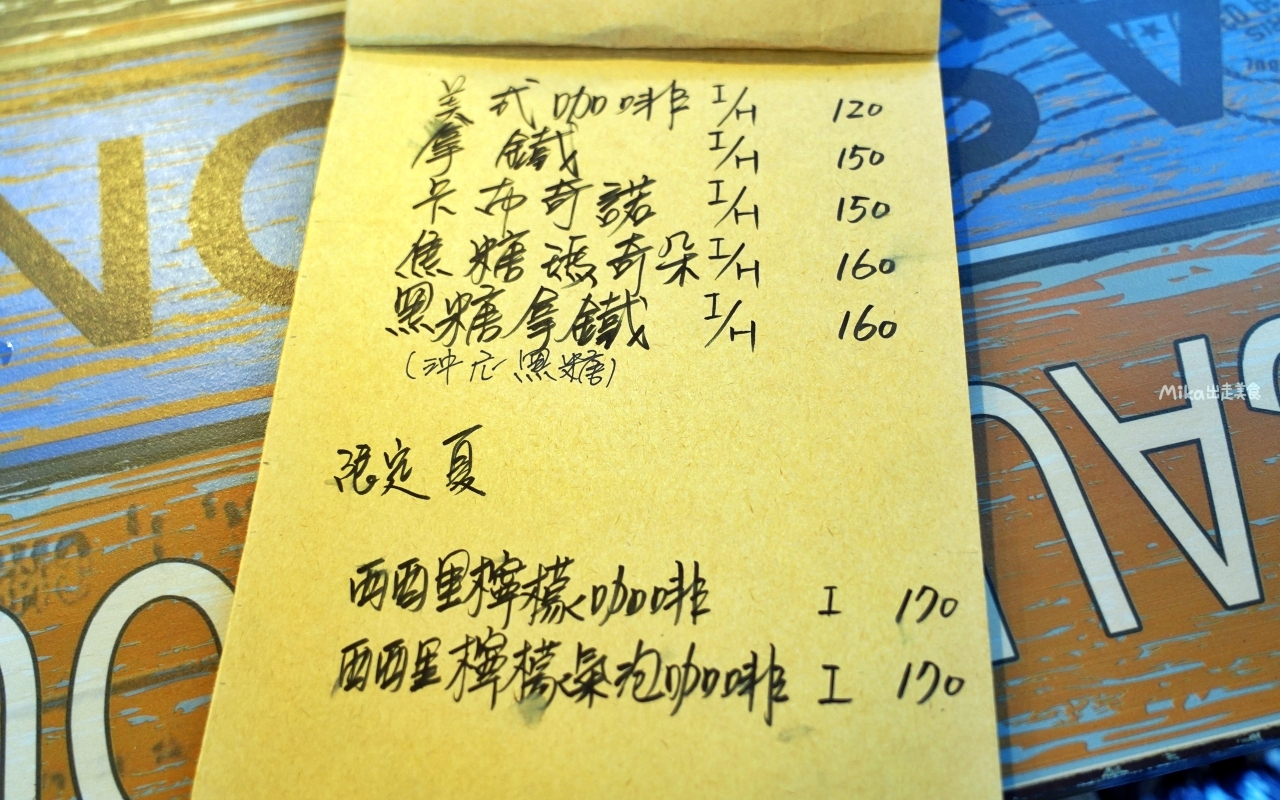 美式咖啡 I/H 120
拿鐵 I/H 150
卡布奇諾 I/H 150
焦糖瑪奇朵 I/H 160
黑糖拿鐵 I/H 160
(沖尢黑糖)
限定 夏
西西里檸檬咖啡 I 170
西西里檸檬氣泡咖啡 I 170
Mika出走美食